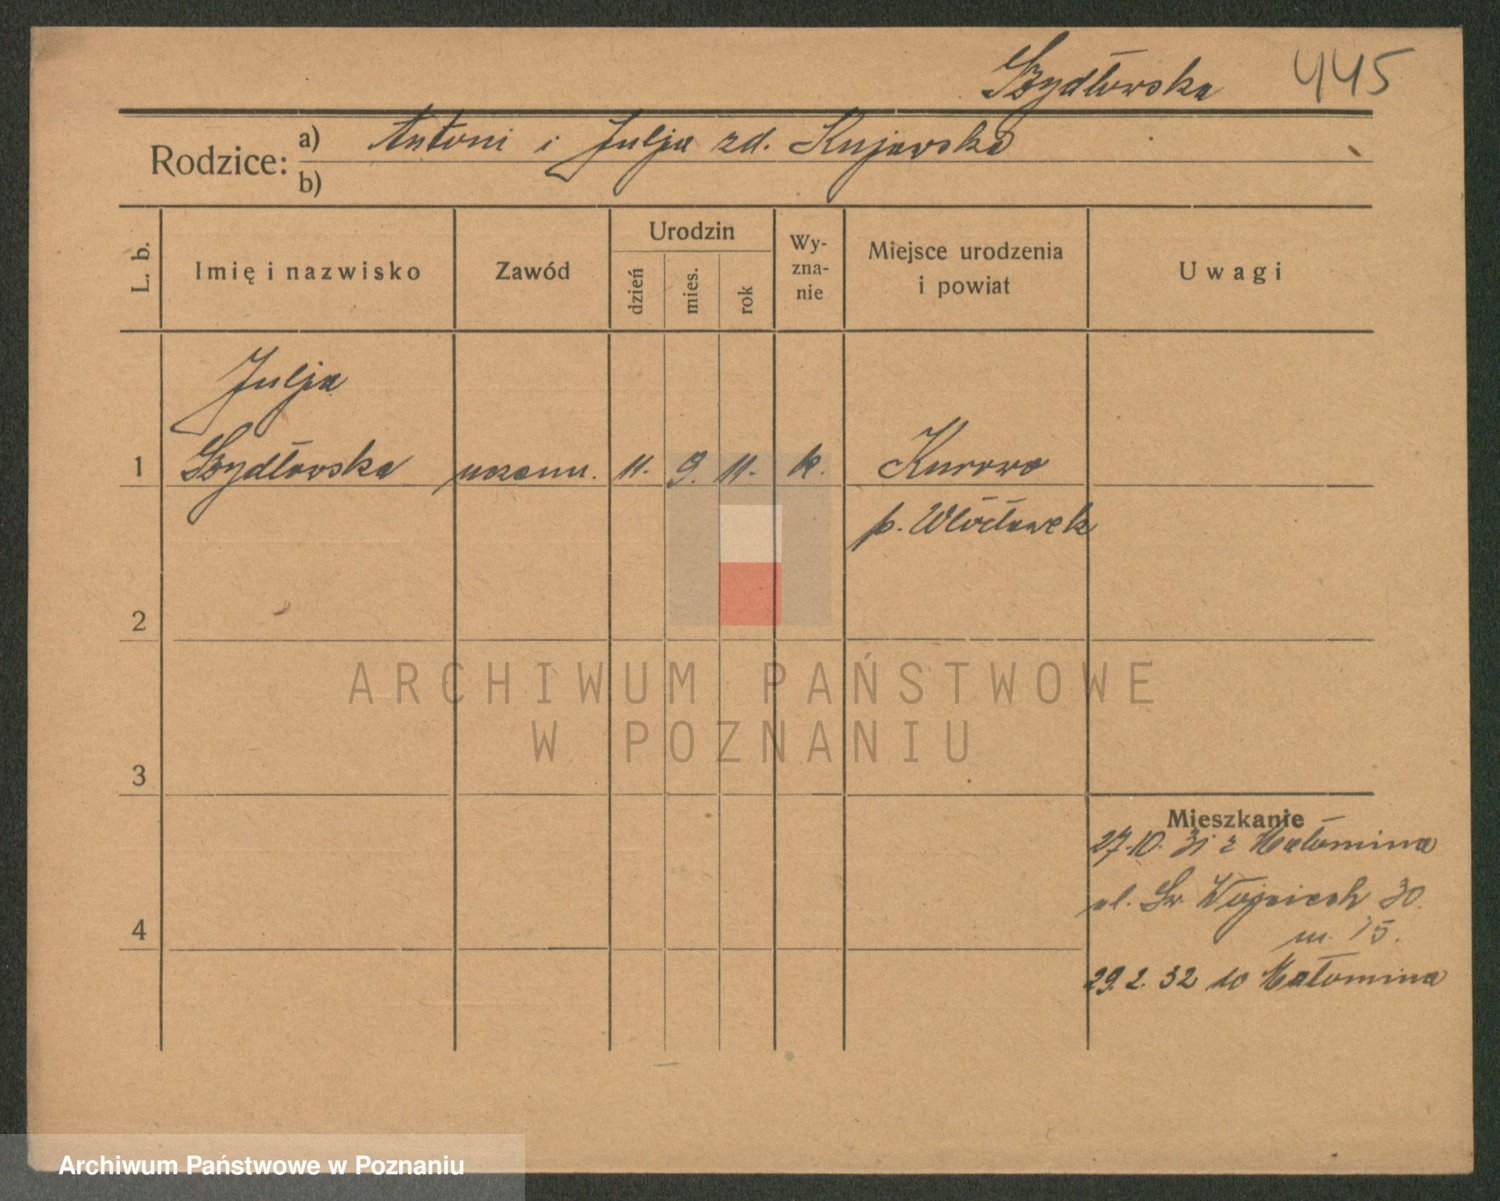 Szydłowska 445
Rodzice: a) Antoni i Julja zd. Kujawska
b)
L. b.
Imię i nazwisko
Zawód
Urodzin
dzień
mies.
rok
Wy-
zna-
nie
Miejsce urodzenia
i powiat
Uwagi
Julja
1 Szydłowska uczenn. 11. 9. 11. k. Kurowo
p. Włocławek
2
3
4
Mieszkanie
27.10.31 z Małomina
ul. Św Wojciech 30.
m. 15.
29.2.32 do Małomina
ARCHIWUM PAŃSTWOWE
W POZNANIU
Archiwum Państwowe w Poznaniu